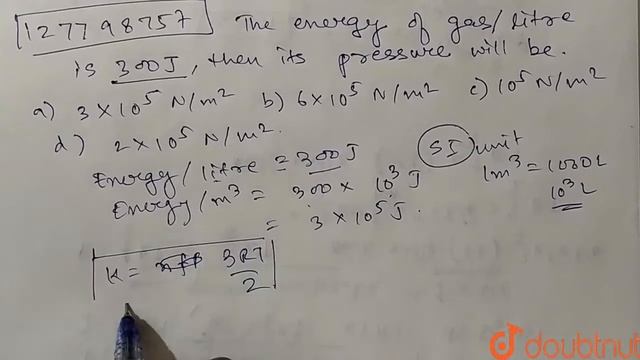 127798757 The energy of gas/litre
is 300J, then its pressure will be.
a) 3×10⁵ N/m² b) 6×10⁵ N/m² c) 10⁵ N/m²
d) 2×10⁵ N/m².
Energy/litre = 300J
SI unit
Energy/m³ = 300 × 10³ J
1m³ = 1000L
10³ L
= 3×10⁵ J.
K = 3RT
2
doubtnut